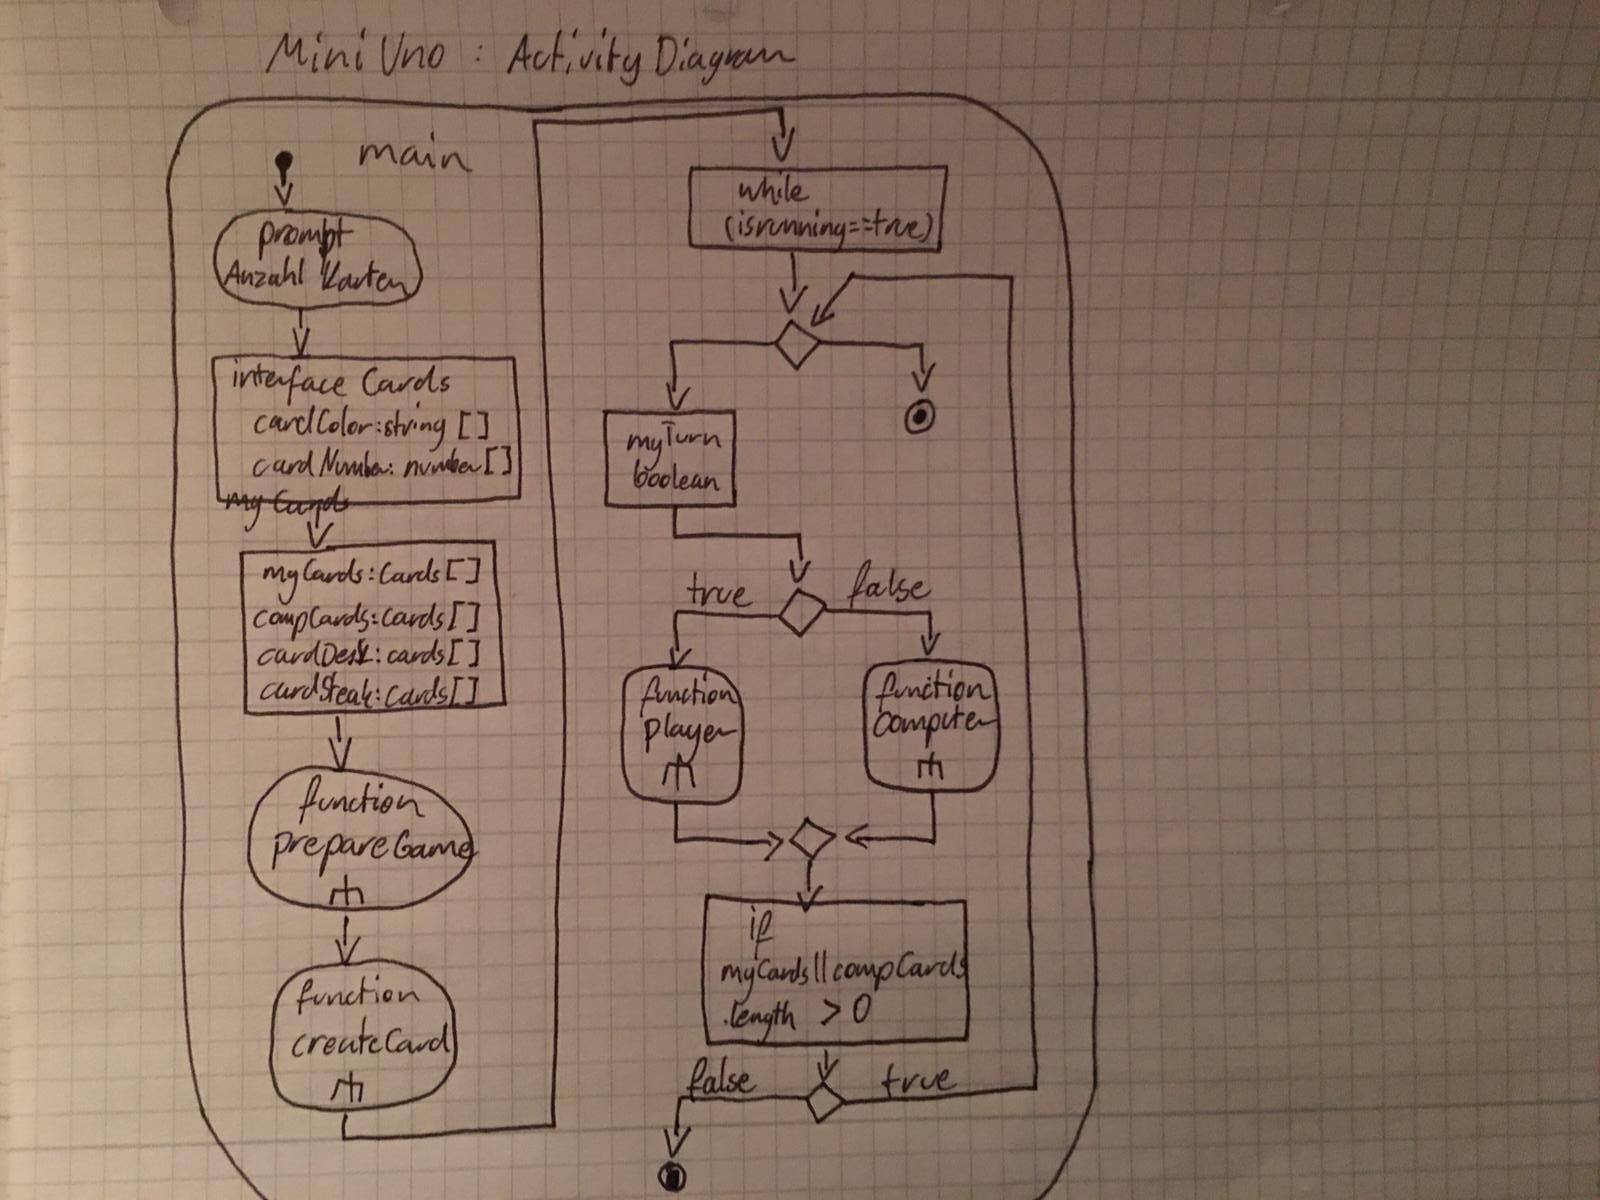 Mini Uno : Activity Diagram
main
prompt
Anzahl Karten
interface Cards
cardColor:string []
cardNumber: number[]
my Cards
myCards:Cards[]
compCards:Cards[]
cardDesk:cards[]
cardSteak:Cards[]
function
prepareGame
function
createCard
while
(isrunning==true)
myTurn
boolean
true
false
function
player
function
computer
if
myCards||compCards
.length > 0
false
true